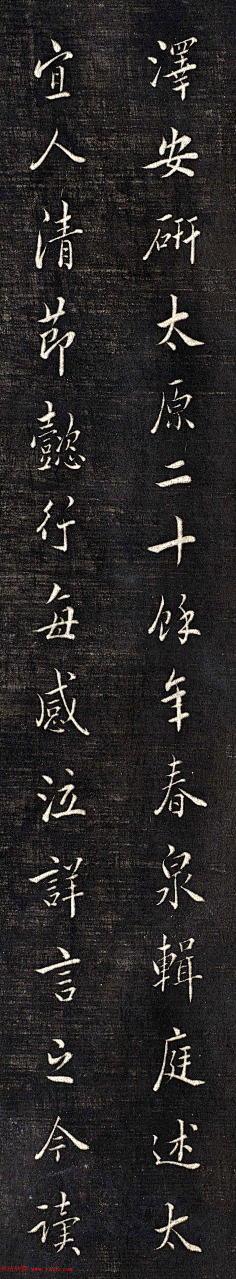 澤安研太原二十餘年春泉輯庭述太
宜人清節懿行每感泣詳言之今读